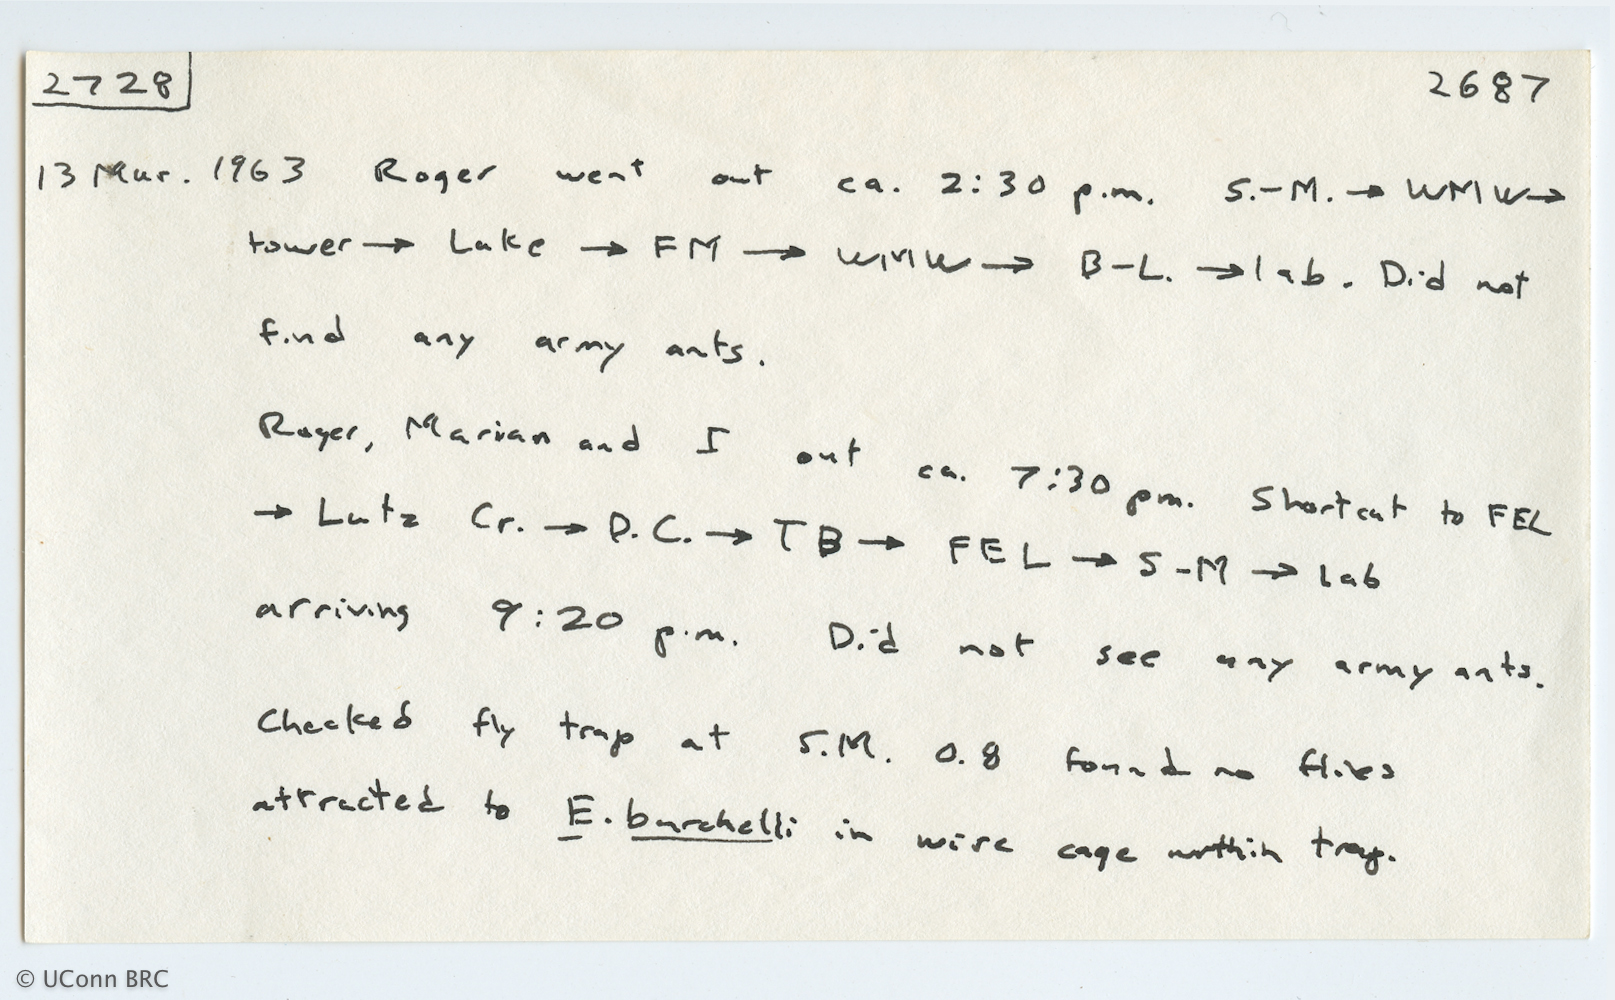 2728 2687
13 Mar. 1963 Roger went out ca. 2:30 p.m. S.-M. → WMW →
tower → Lake → FM → WMW → B-L. → lab. Did not
find any army ants.
Roger, Marian and I out ca. 7:30 pm. Shortcut to FEL
→ Lutz Cr. → D.C. → TB → FEL → S-M → lab
arriving 9:20 p.m. Did not see any army ants.
Checked fly trap at S.M. 0.8 found no flies
attracted to E. burchelli in wire cage within trap.
© UConn BRC